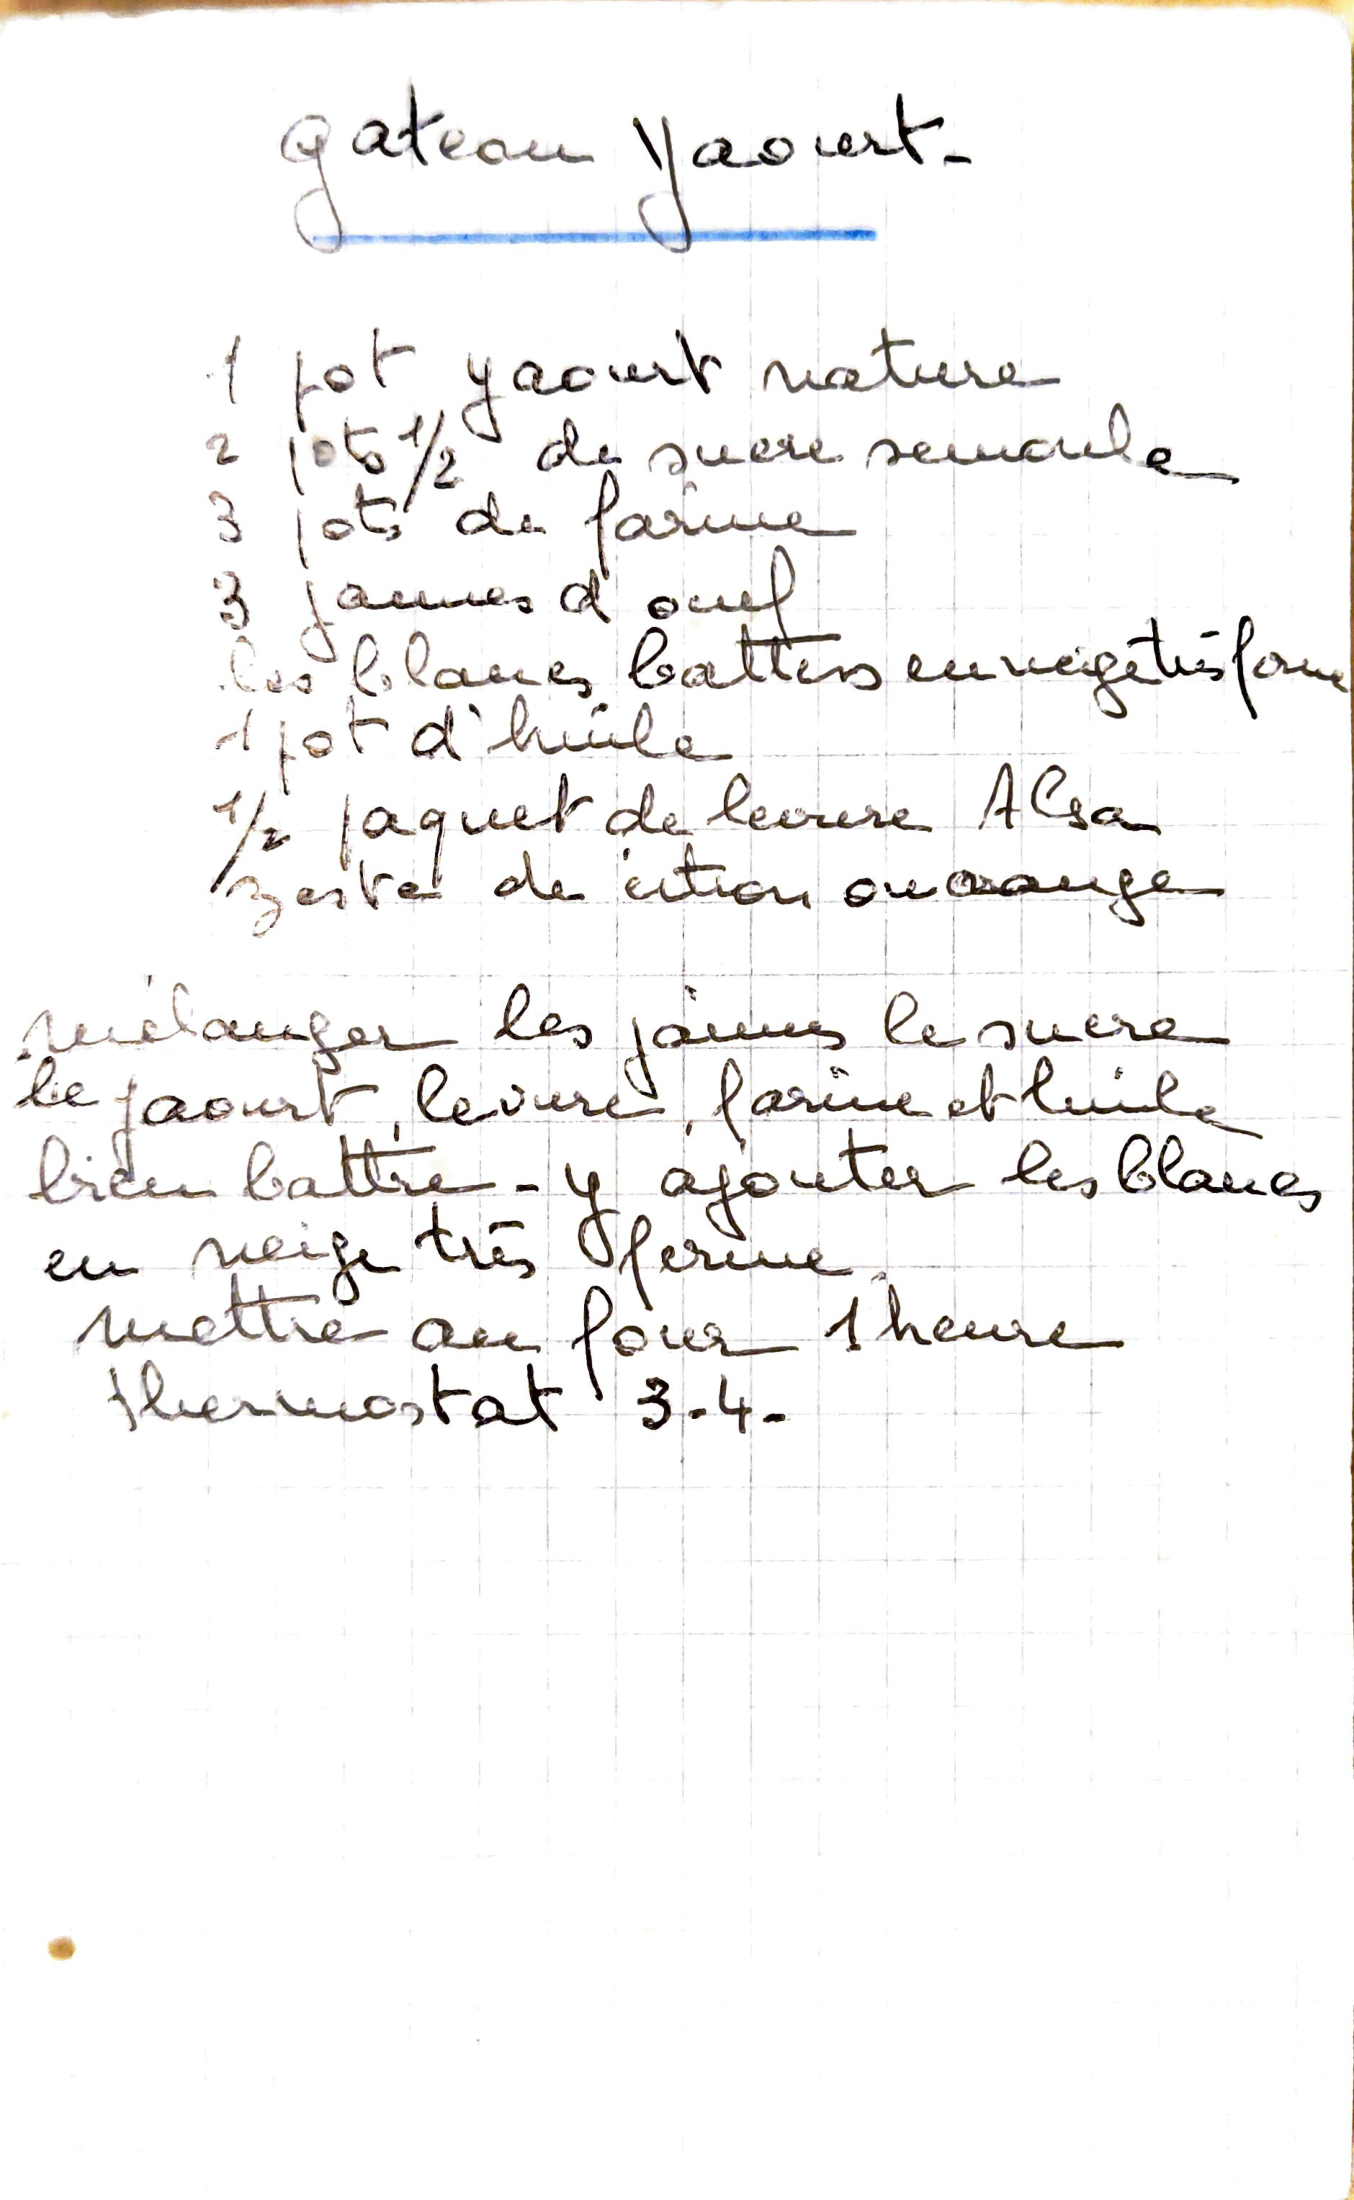 gateau Yaourt-
1 pot yaourt nature
2 pots 1/2 de sucre semoule
3 pots de farine
3 jaunes d'oeuf
les blancs battus en neige très ferme
1 pot d'huile
1/2 paquet de levure Alsa
zeste de citron ou orange
mélanger les jaunes le sucre
le yaourt, levure, farine et huile
bien battre - y ajouter les blancs
en neige très ferme.
mettre au four 1 heure
thermostat 3-4-